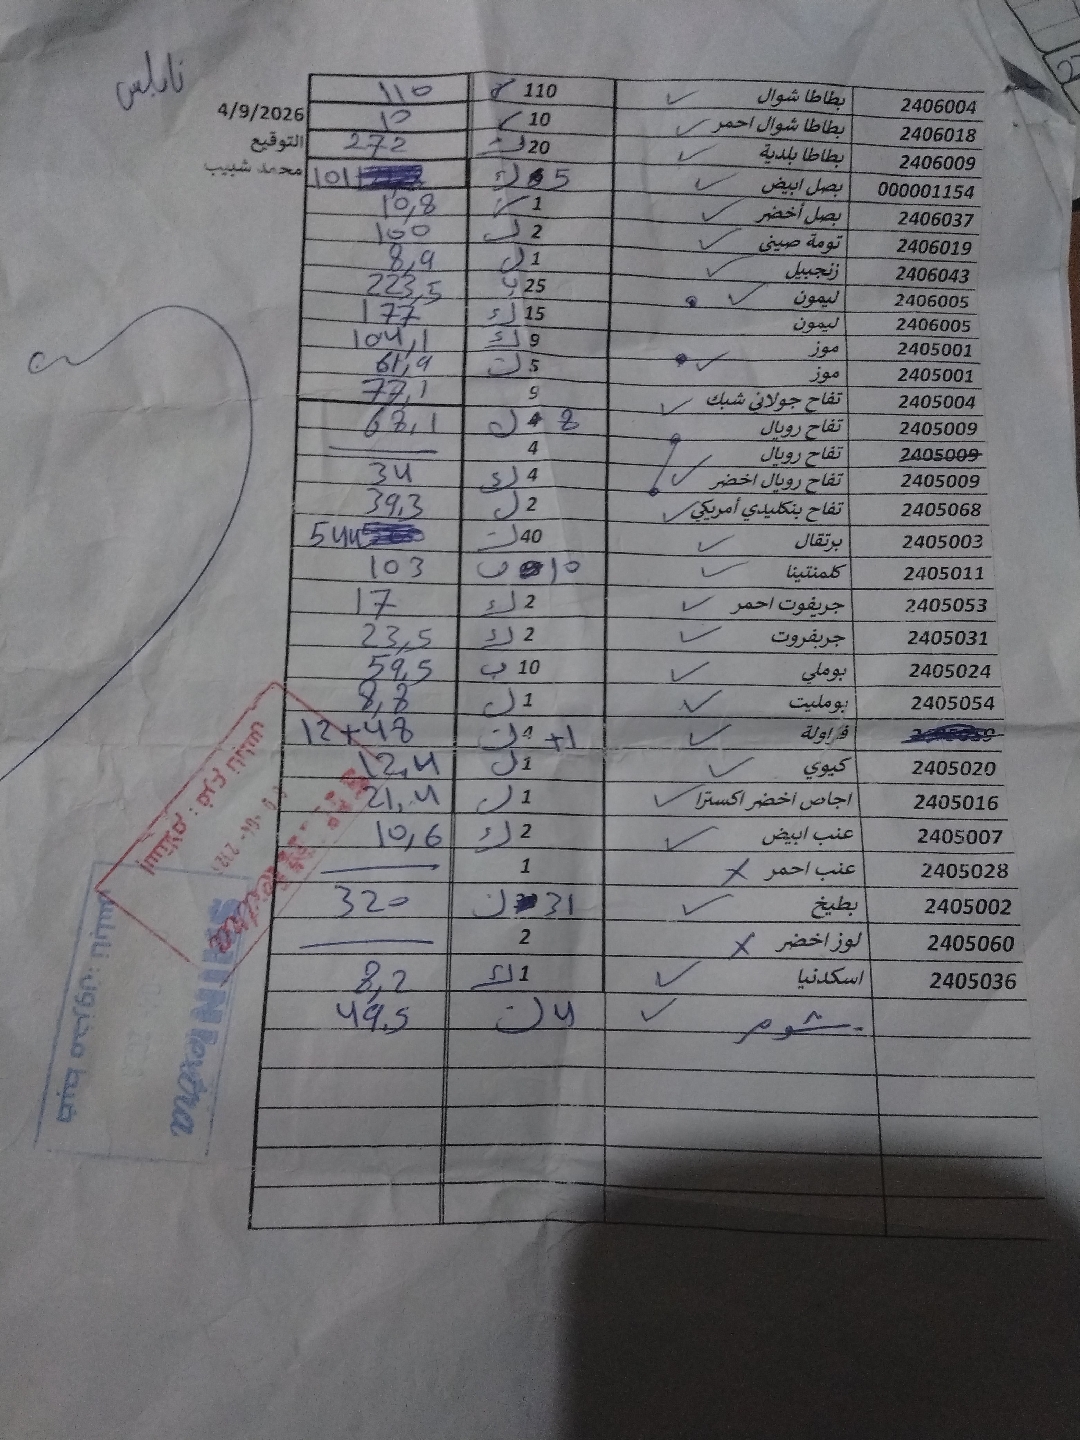 نابلس
4/9/2026
التوقيع
محمد شبيب
2406004 بطاطا شوال ✓ 110 110
2406018 بطاطا شوال احمر ✓ 10 10
2406009 بطاطا بلدية ✓ 20 272
000001154 بصل ابيض ✓ 5 ك 101
2406037 بصل أخضر ✓ 1 10,8
2406019 تومة صيني ✓ 2 ك 100
2406043 زنجبيل ✓ 1 ك 8,9
2406005 ليمون ✓ 25 ب 223,5
2406005 ليمون 15 ك 177
2405001 موز ✓ 9 ك 104,1
2405001 موز 5 ك 61,9
2405004 تفاح جولاني شبك ✓ 9 77,1
2405009 تفاح رويال 8 ك 68,1
2405009 تفاح رويال 4
2405009 تفاح رويال اخضر ✓ 4 ك 34
2405068 تفاح بنكليدي أمريكي ✓ 2 ك 39,3
2405003 برتقال ✓ 40 ك 544
2405011 كلمنتينا ✓ 10 ب 103
2405053 جريفوت احمر ✓ 2 ك 17
2405031 جربفروت ✓ 2 ك 23,5
2405024 بوملي ✓ 10 ب 59,5
2405054 بومليت ✓ 1 ك 8,8
فراولة ✓ 4 +1 ك 12+48
2405020 كيوي ✓ 1 ك 12,4
2405016 اجاص اخضر اكسترا ✓ 1 ك 21,4
2405007 عنب ابيض ✓ 2 ك 10,6
2405028 عنب احمر x 1
2405002 بطيخ ✓ 31 ك 320
2405060 لوز اخضر x 2
2405036 اسكدنيا ✓ 1 ك 8,2
شوم ✓ 4 ك 49,5